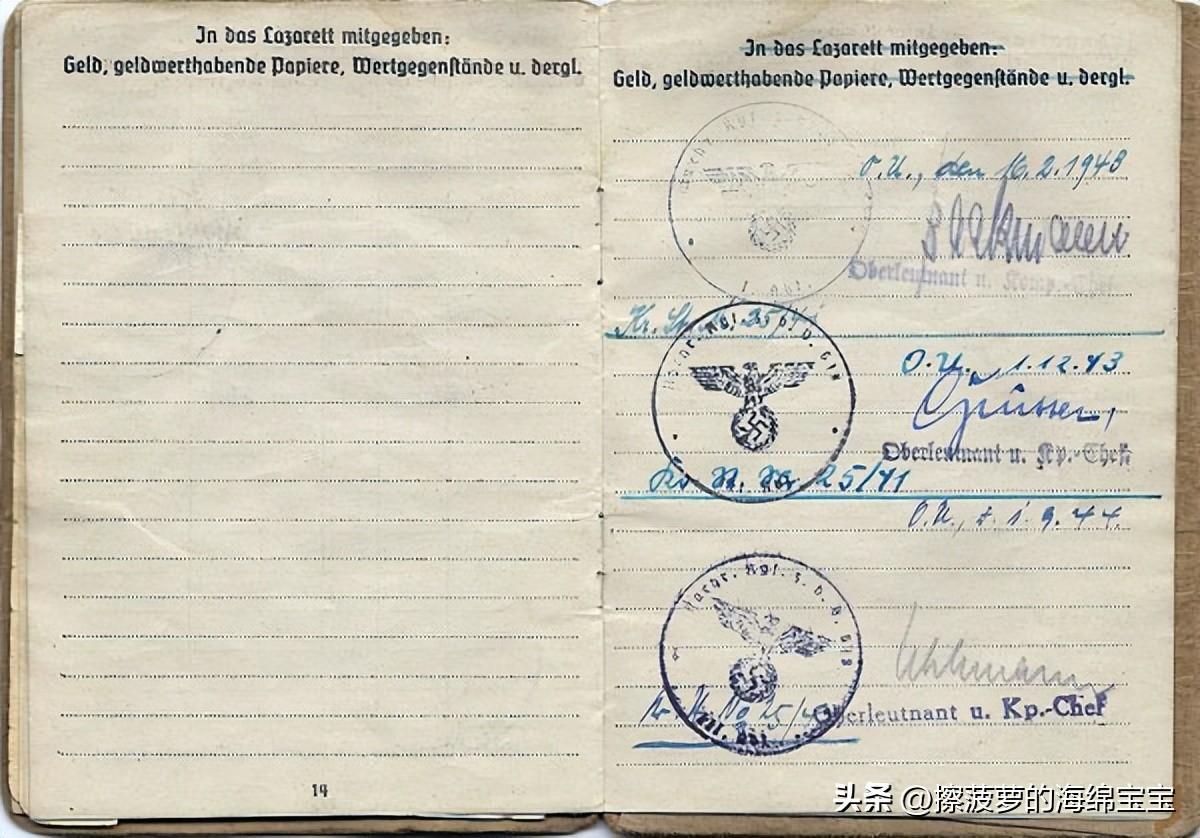 In das Lazarett mitgegeben:
Geld, geldwerthabende Papiere, Wertgegenstände u. dergl.
14
In das Lazarett mitgegeben:
Geld, geldwerthabende Papiere, Wertgegenstände u. dergl.
O.U., den 16.2.1943
Oberleutnant u. Komp.-Chef
Nachr. Rgl. z. b. V.
O.U. 1.12.43
Oberleutnant u. Kp.-Chef
25/41
O.U., d. 1.9.44.
Nachr. Rgl. z. b. V.
Uhlmann
Oberleutnant u. Kp.-Chef
头条 @擦菠萝的海绵宝宝